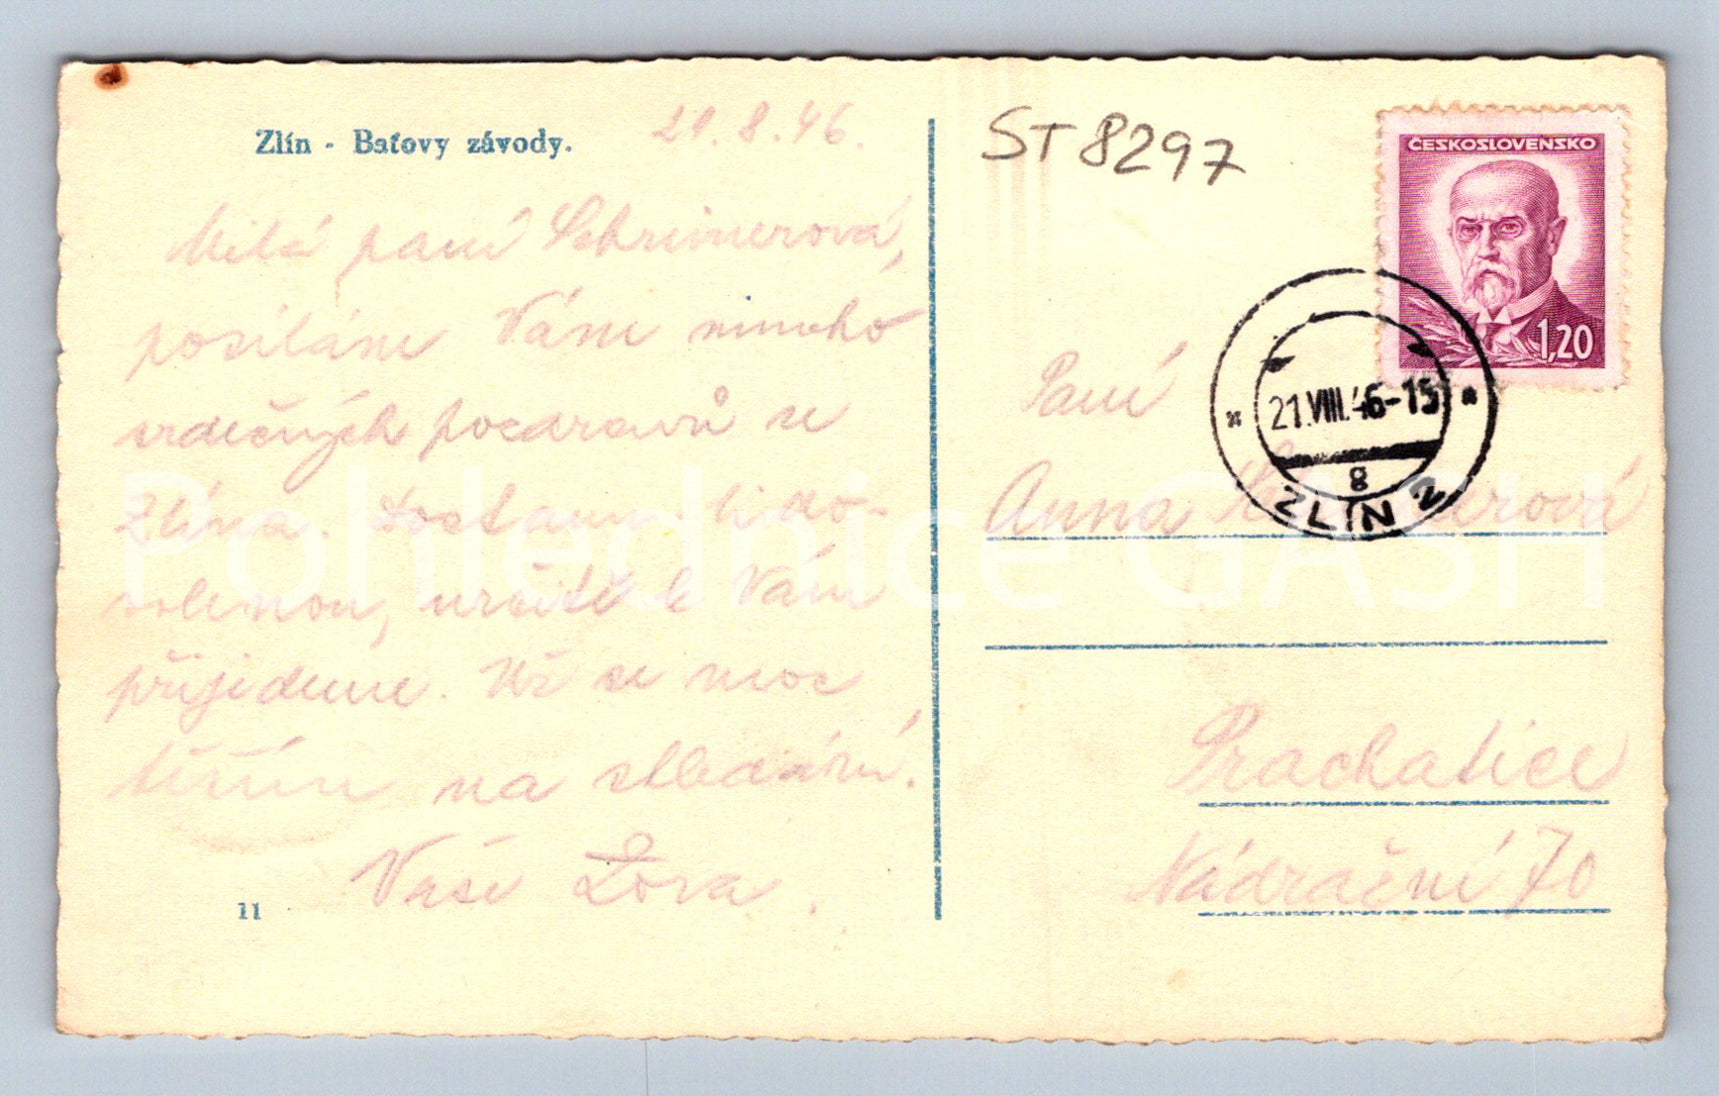 Zlín - Baťovy závody.
21.8.46.
Milá paní Schreinerová,
posíláme Vám mnoho
srdečných pozdravů ze
Zlína. Dostanu-li do-
volenou, určitě k Vám
přijedeme. Už se moc
těším na shledání.
Vaše Zora.
11
ST 8297
ČESKOSLOVENSKO
1,20
21.VIII.46-15
8
ZLÍN 2
Paní
Anna
Prachatice
Nádražní 70
Pohlednice GASH